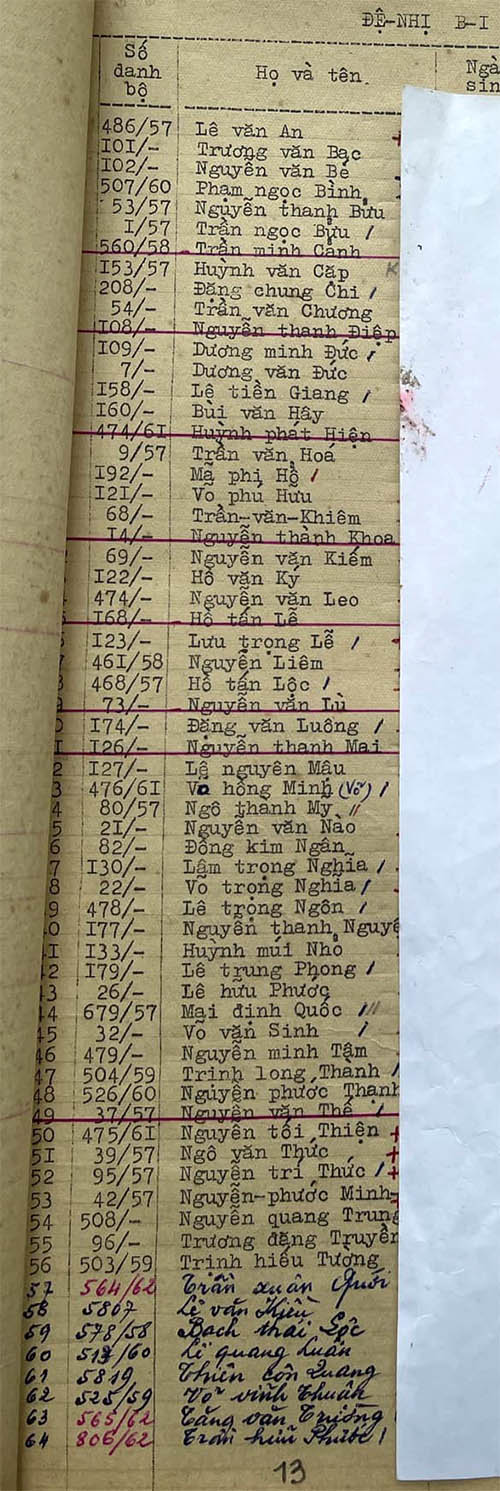 ĐỆ-NHỊ B-I
Số danh bộ Họ và tên Ngà sin
486/57 Lê văn An
I0I/- Trương văn Bạc
I02/- Nguyễn văn Bé
507/60 Phạm ngọc Bình
53/57 Nguyễn thanh Bửu
I/57 Trần ngọc Bửu /
560/58 Trần minh Cảnh
I53/57 Huỳnh văn Cặp K
208/- Đặng chung Chi /
54/- Trần văn Chương
I08/- Nguyễn thanh Điệp
I09/- Dương minh Đức /
7/- Dương văn Đức
I58/- Lê tiền Giang /
I60/- Bùi văn Hây
474/6I Huỳnh phát Hiện
9/57 Trần văn Hoá
I92/- Mã phi Hổ /
I2I/- Võ phú Hữu
68/- Trần-văn-Khiêm
I4/- Nguyễn thành Khoa
69/- Nguyễn văn Kiếm
I22/- Hồ văn Ký
474/- Nguyễn văn Leo
I68/- Hồ tấn Lễ
I23/- Lưu trọng Lễ /
46I/58 Nguyễn Liêm
468/57 Hồ tấn Lộc /
73/- Nguyễn văn Lù
0 I74/- Đặng văn Luông /
I I26/- Nguyễn thanh Mai
2 I27/- Lê nguyên Mậu
3 476/6I Võ hồng Minh (Võ) /
4 80/57 Ngô thành Mỹ //
5 2I/- Nguyễn văn Nào
6 82/- Đồng kim Ngân
7 I30/- Lâm trọng Nghĩa /
8 22/- Võ trọng Nghĩa /
9 478/- Lê trọng Ngôn /
0 I77/- Nguyễn thanh Nguyê
4I I33/- Huỳnh múi Nhỏ
42 I79/- Lê trung Phong /
43 26/- Lê hữu Phước
44 679/57 Mai định Quốc /
45 32/- Võ văn Sinh /
46 479/- Nguyễn minh Tâm
47 504/59 Trinh long Thành /
48 526/60 Nguyễn phước Thanh
49 37/57 Nguyễn văn Thế /
50 475/6I Nguyễn tối Thiện +
5I 39/57 Ngô văn Thức +
52 95/57 Nguyễn trí Thức / +
53 42/57 Nguyễn-phước Minh
54 508/- Nguyễn quang Trung
55 96/- Trương đặng Truyền
56 503/59 Trịnh hiếu Tường
57 564/62 Trần xuân Quới
58 5807 Lê văn Kiều
59 578/58 Bạch thái Lộc
60 /60 Lê quang Luân
61 5819 Thiên côn Quang
62 525/59 Võ vĩnh Thuân
63 565/62 Tăng văn Trường
64 806/62 Trần hữu Phước /
13